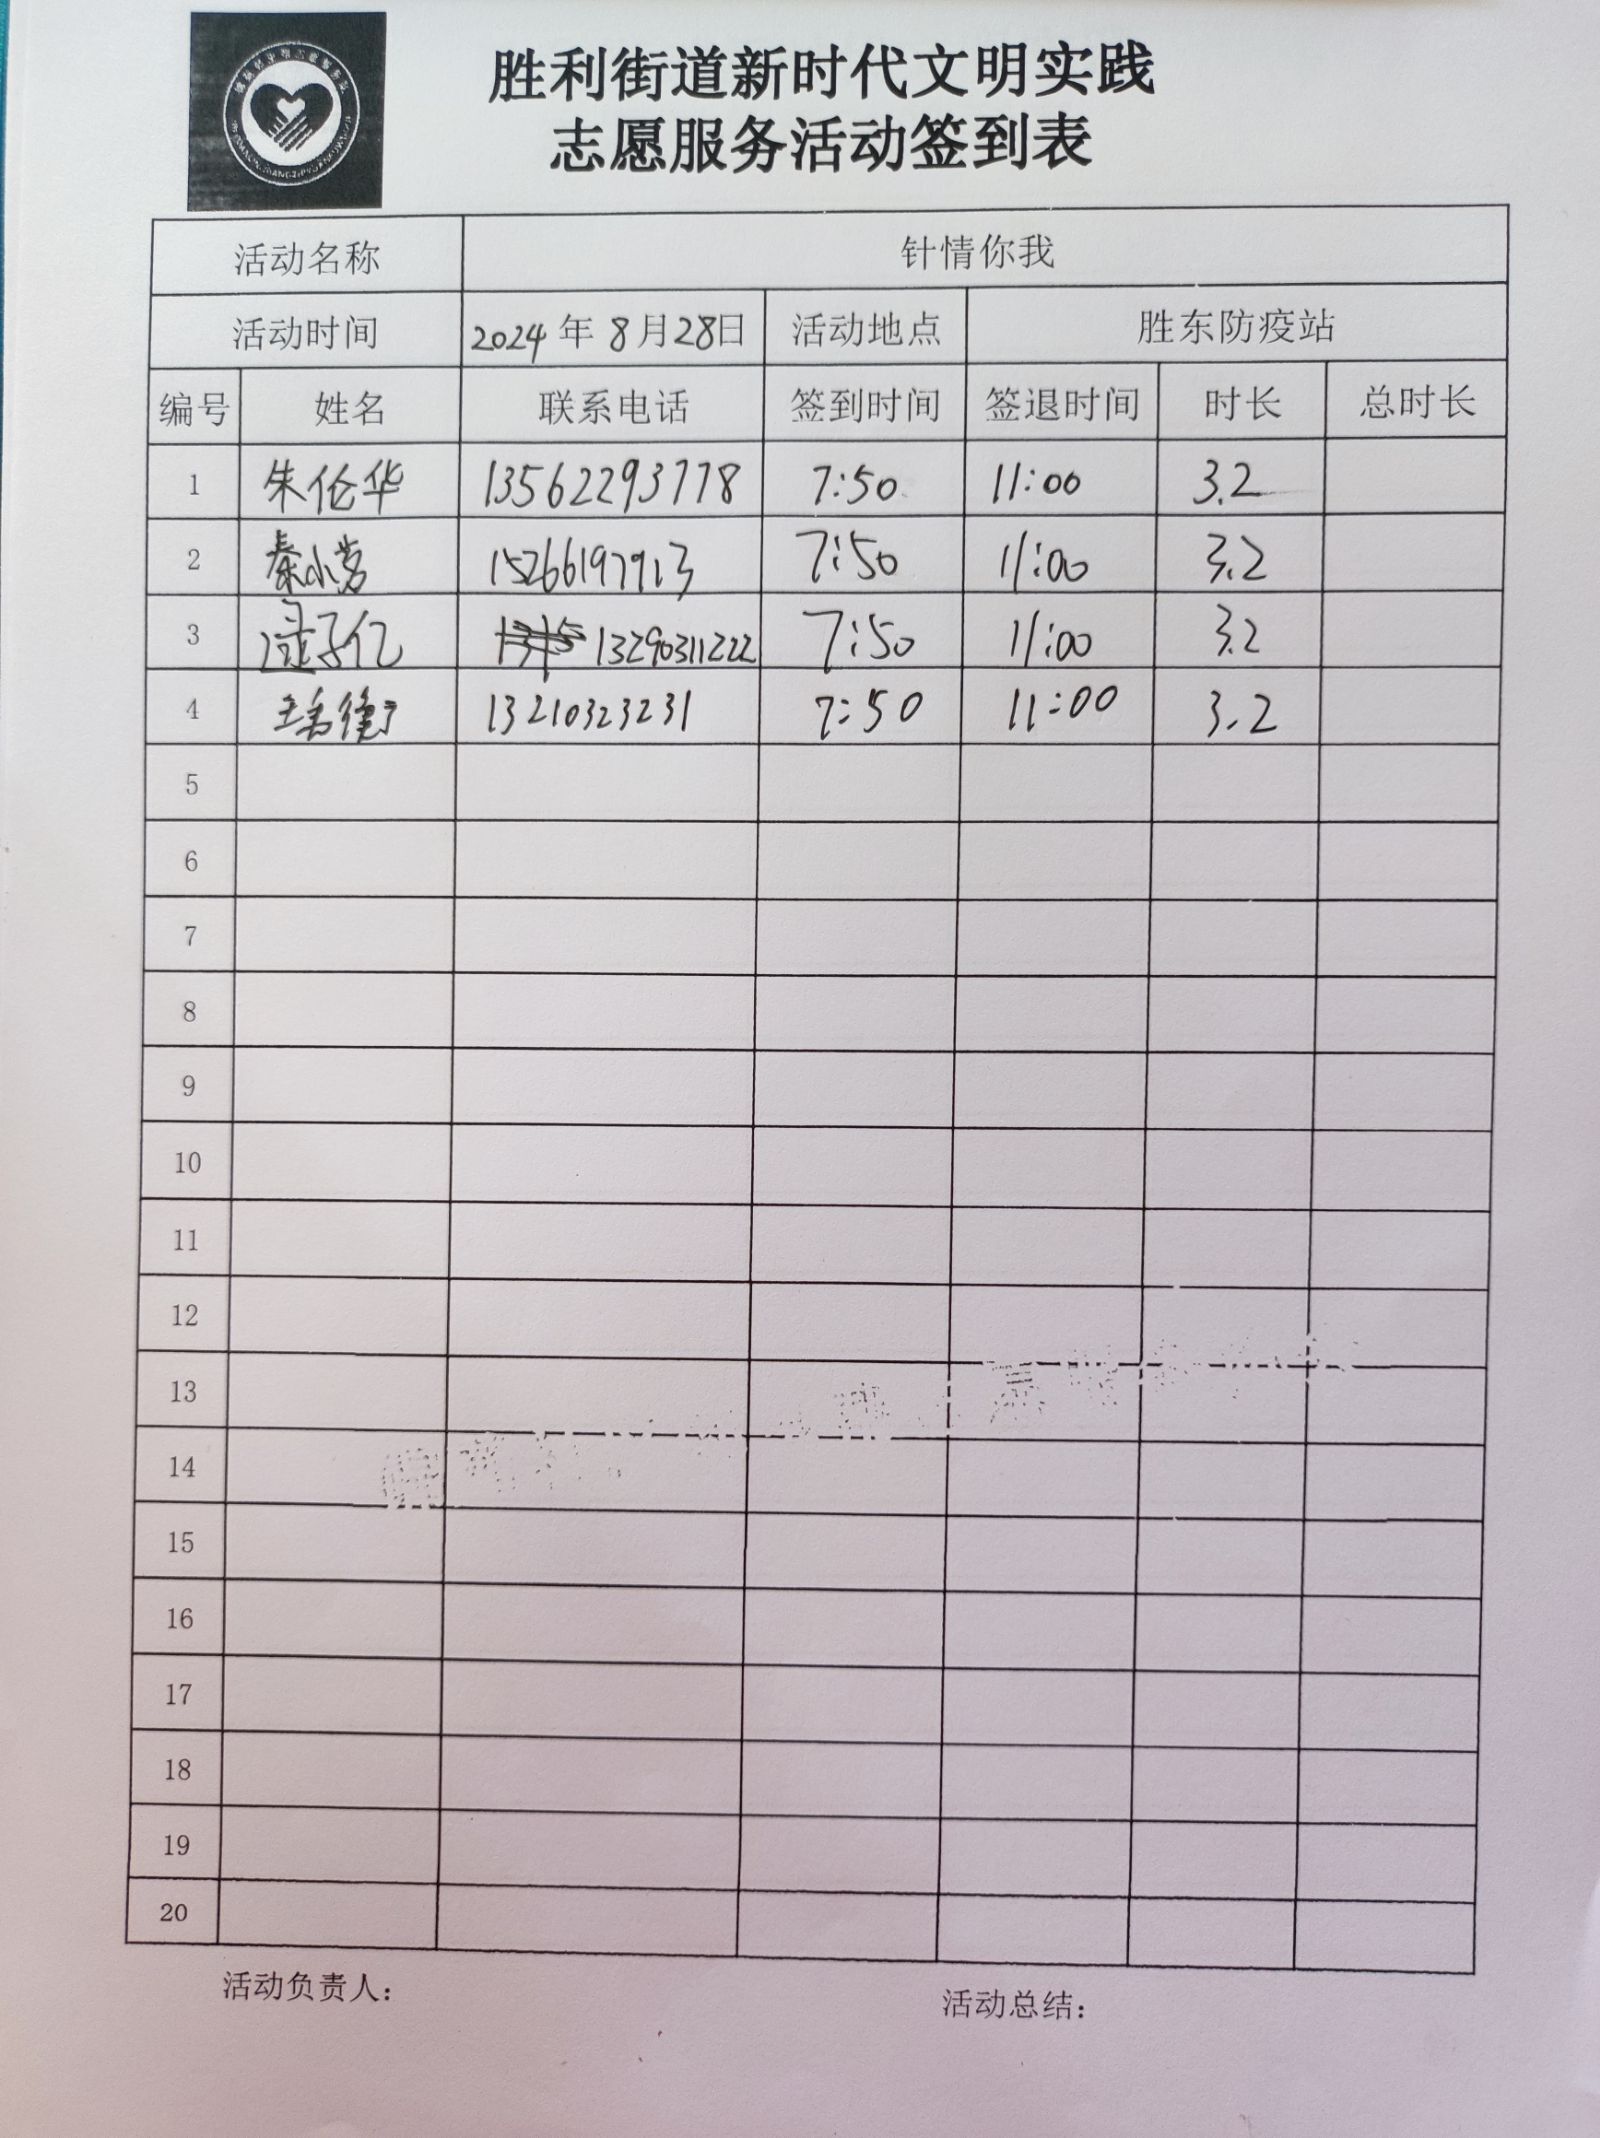 胜利街道新时代文明实践
志愿服务活动签到表
活动名称 针情你我
活动时间 2024年8月28日 活动地点 胜东防疫站
编号 姓名 联系电话 签到时间 签退时间 时长 总时长
1 朱伦华 13562293778 7:50 11:00 3.2
2 秦小茗 15266197913 7:50 11:00 3.2
3 子亿 13290311222 7:50 11:00 3.2
4 13210323231 7:50 11:00 3.2
5
6
7
8
9
10
11
12
13
14
15
16
17
18
19
20
活动负责人： 活动总结：